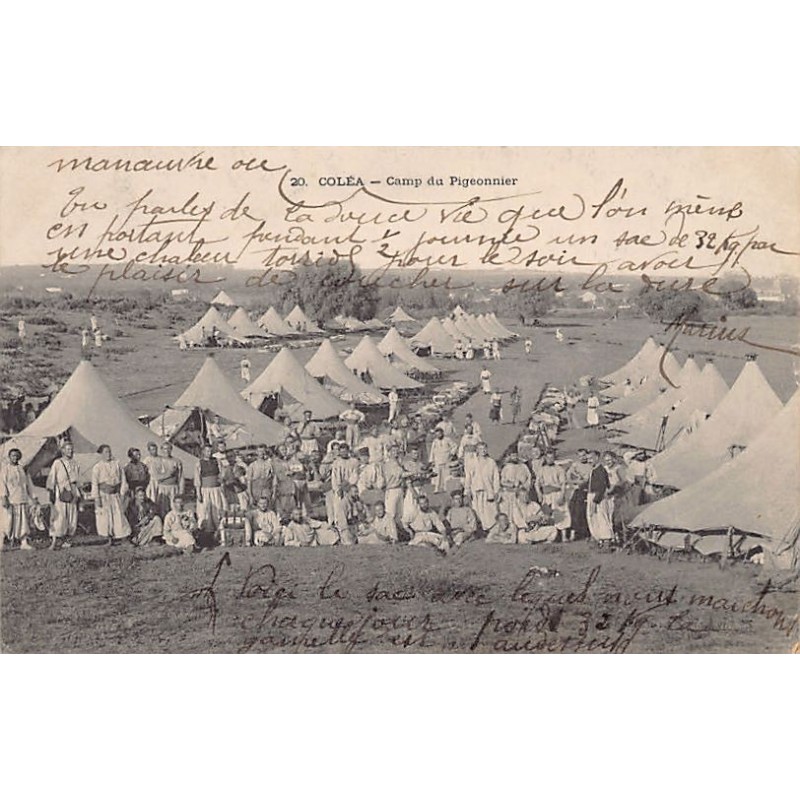 manœuvre ou
20. COLÉA — Camp du Pigeonnier
Tu parles de la douce vie que l'on mène
en portant pendant 1/2 journée un sac de 32 kg par
une chaleur torride pour le soir avoir
le plaisir de coucher sur la dure
Marius
Voici le sac avec lequel nous marchons
chaque jour poids 32 kg la
gamelle est au dessus